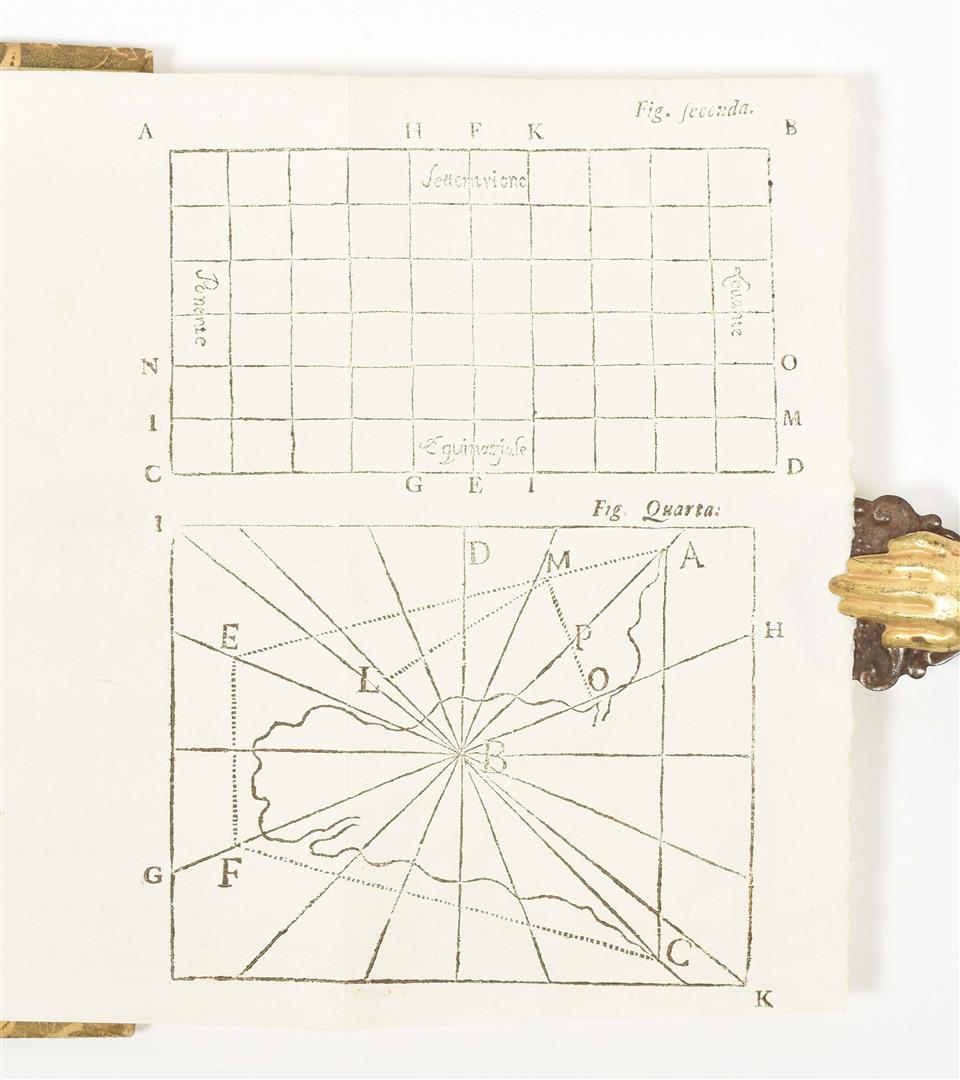 Fig. ſeconda.
A H F K B
Settentrione
Ponente
Levante
N O
I M
Equinoziale
C D
G E I
Fig. Quarta:
I
D M A
E P H
L O
B
G F
C
K